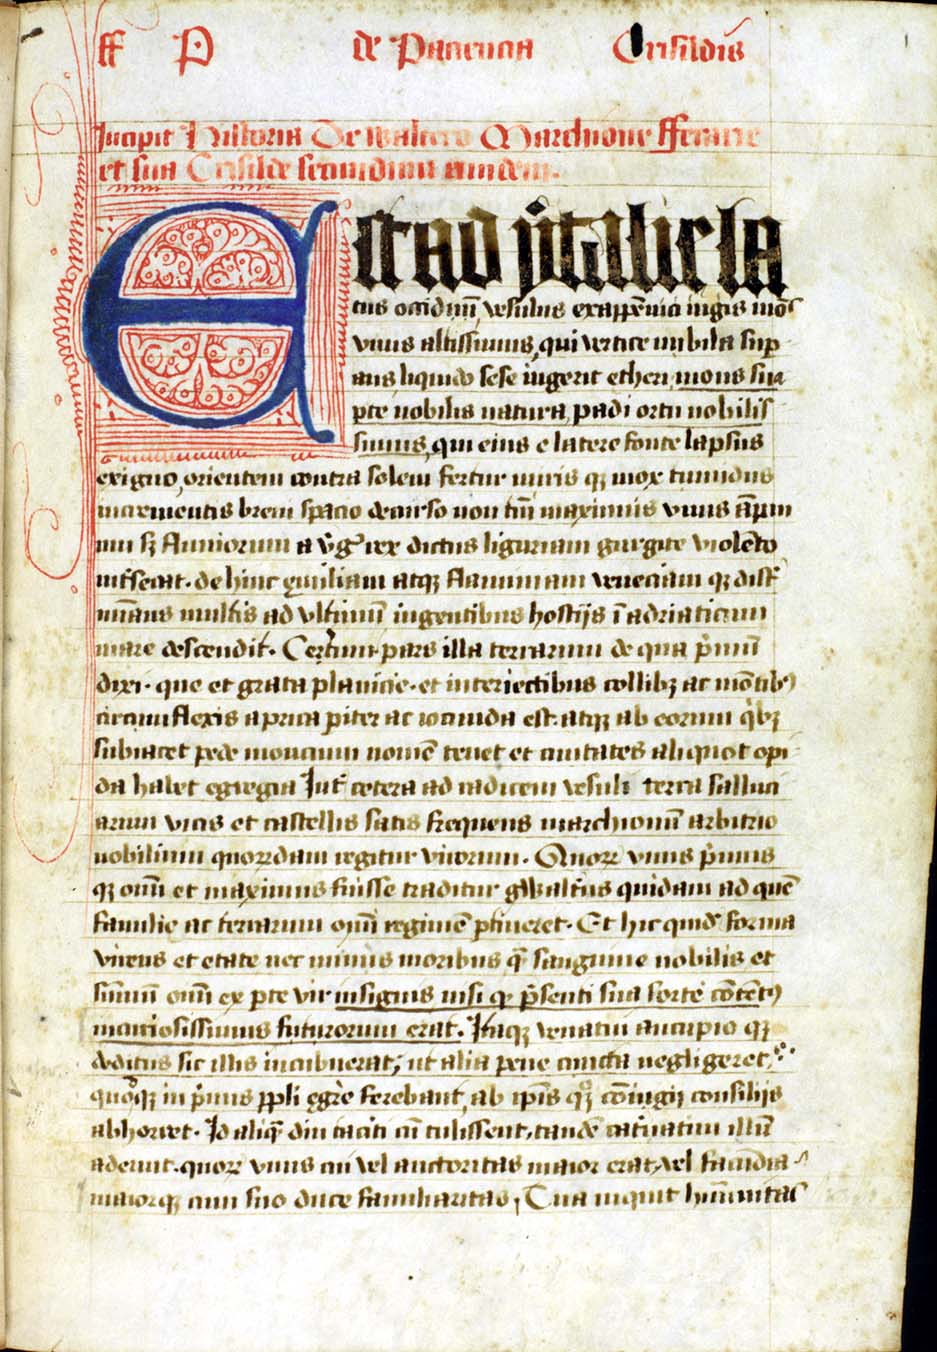 ff P de Paciencia Grisildis
Incipit Historia De Waltero Marchione fferarie
et sua Grisilde secundum eundem.
Est ad ytalie la
tus occiduū, vesulus ex appēnini iugis mōs
vnus altissimus, qui vertice nubila sup
ans liquido sese ingerit etheri, mons sua
pte nobilis natura, padi ortu nobilis
simus, qui eius e latere fonte lapsus
exiguo, orientem contra solem fertur miris qȝ mox tumidus
incrementis breui spacio decurso non tm̄ maximus vnus
mi sȝ fluuiorum a rex dictus liguriam gurgite violēto
int̄secat. dehinc emiliam atqȝ flaminiam veneciam qȝ dist̄
mīans multis ad vltimū ingentibus hostijs ī adriaticum
mare descendit. Ceterum pars illa terrarum de qua p̄mū
dixi. que et grata planicie. et interiectibus collibȝ ac mōtibȝ
circumflexis aprica piter ac iocunda est. atqȝ ab eorum q̄bȝ
subiacet pede moncium nomē tenet et ciuitates aliquot opi
da habet egregia Int̄ cetera ad radicem vesuli terra salluci
arum vicis et castellis satis frequens marchionū arbitrio
nobilium quorꝝdam regitur virorum. Quorꝝ vnus p̄mus
qȝ om̄i et maximus fuisse traditur gwalt̄us quidam ad quē
familie ac terrarum om̄i regimē ptineret. Et hic quidē forma
virens et etate nec minus moribus q̄ sanguine nobilis et
sūmū om̄i ex pte vir insignis nisi qȝ p̄senti sua sorte cōtētȝ
incuriosissimus futurorum erat. Itaqȝ venatui aucupio qȝ
deditus sic illis incubuerat, ut alia pene cuncta negligeret,
quoqȝ in p̄mis ppli egre ferebant, ab ip̄is qȝ cōiugij consilijs
abhorret. Id aliq̄ diu taciti cū tulissent, tandē cat̄uatim illū
adeunt. quorꝝ vnus cui vel auctoritas maior erat, vel facūdia
maiorqȝ cum suo duce familiaritas, Tua inquit hūanitas